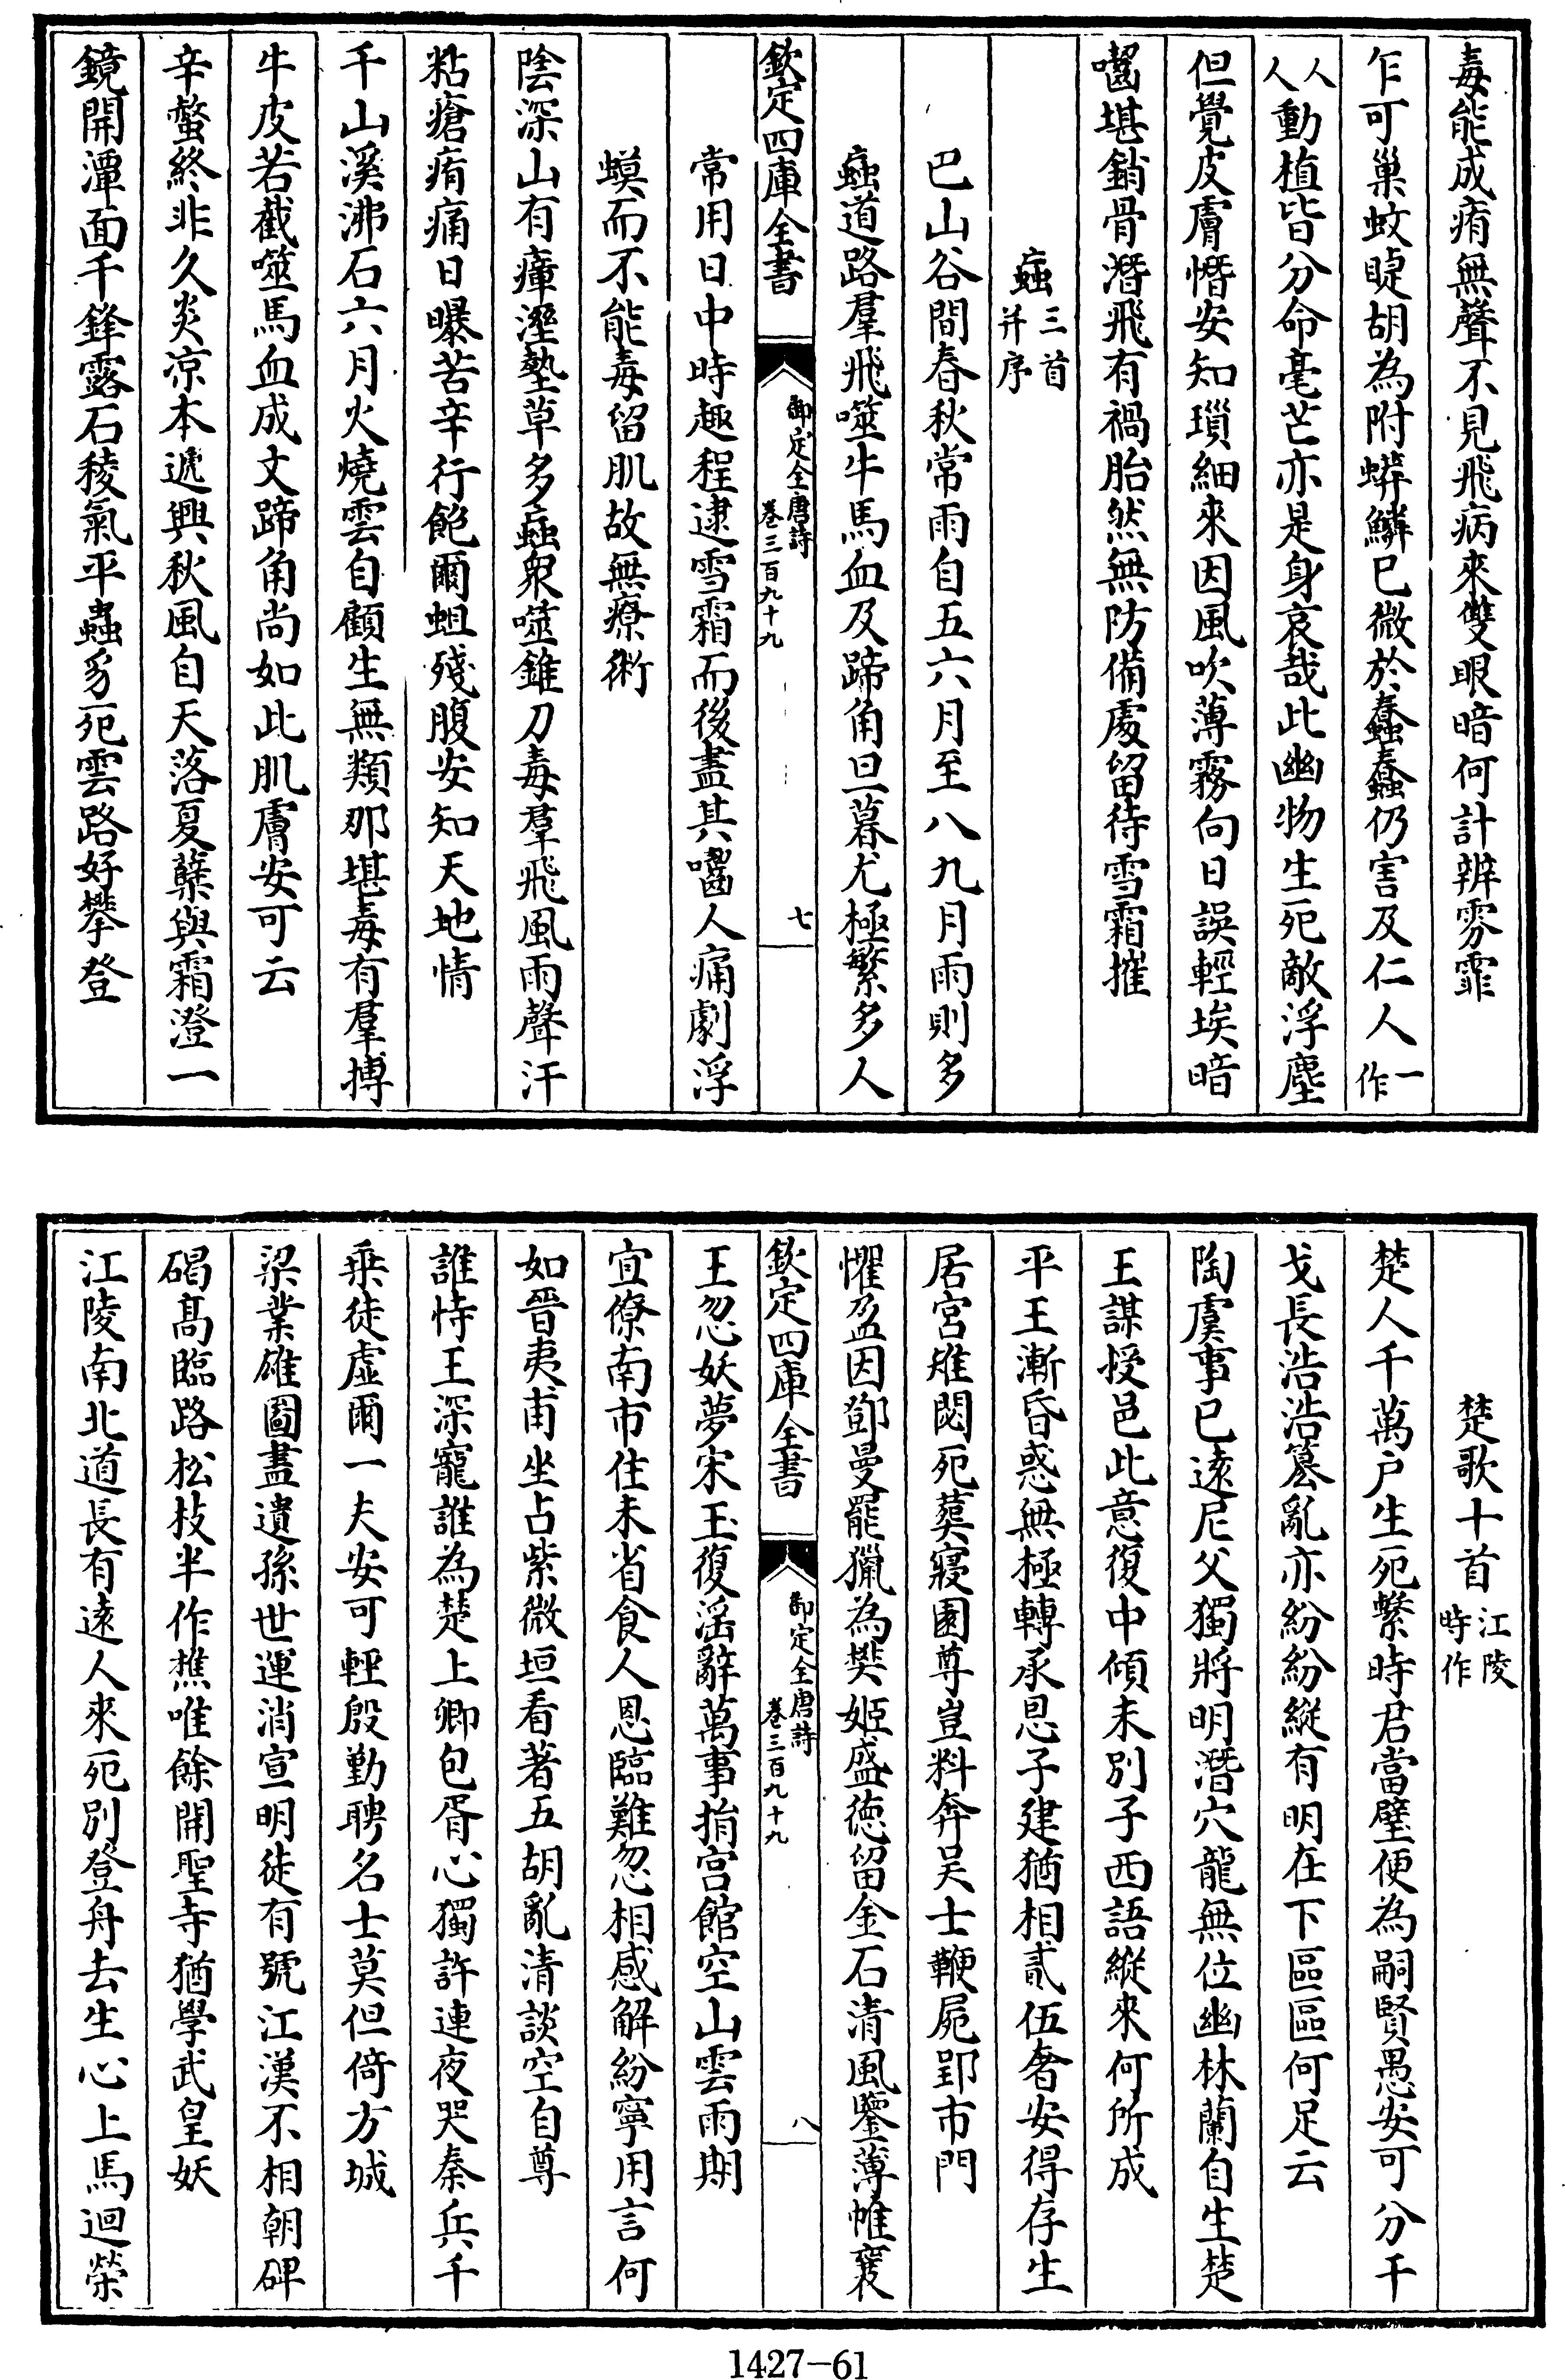 毒能成痏無聲不見飛病來雙眼暗何計辨雰霏
乍可巢蚊睫胡為附蟒鱗已微於蠢蠢仍害及仁人一作
人人動植皆分命毫芒亦是身哀哉此幽物生死敵浮塵
但覺皮膚憯安知瑣細來因風吹薄霧向日誤輕埃暗
嚙堪銷骨潛飛有禍胎然無防備處留待雪霜摧
䖟三首并序
巴山谷間春秋常雨自五六月至八九月雨則多
䖟道路羣飛噬牛馬血及蹄角旦暮尤極繁多人
欽定四庫全書
御定全唐詩
卷三百九十九
七
常用日中時趣程逮雪霜而後盡其嚙人痛劇浮
蟆而不能毒留肌故無療術
陰深山有瘴溼墊草多䖟衆噬錐刀毒羣飛風雨聲汗
粘瘡痏痛日曝苦辛行飽爾蛆殘腹安知天地情
千山溪沸石六月火燒雲自顧生無類那堪毒有羣搏
牛皮若截噬馬血成文蹄角尚如此肌膚安可云
辛螫終非久炎涼本遞興秋風自天落夏蘖與霜澄一
鏡開潭面千鋒露石稜氣平蟲豸死雲路好攀登
楚歌十首江陵時作
楚人千萬户生死繫時君當璧便為嗣賢愚安可分干
戈長浩浩簒亂亦紛紛縱有明在下區區何足云
陶虞事已遠尼父獨將明潛穴龍無位幽林蘭自生楚
王謀授邑此意復中傾未別子西語縱來何所成
平王漸昏惑無極轉承恩子建猶相貳伍奢安得存生
居宮雉閟死葬寢園尊豈料奔吴士鞭屍郢市門
懼盈因鄧曼罷獵為樊姬盛徳留金石清風鑒薄帷襄
欽定四庫全書
御定全唐詩
卷三百九十九
八
王忽妖夢宋玉復滛辭萬事捐宫館空山雲雨期
宜僚南市住未省食人恩臨難忽相感解紛寧用言何
如晉夷甫坐占紫微垣看著五胡亂清談空自尊
誰恃王深寵誰為楚上卿包胥心獨許連夜哭秦兵千
乘徒虚爾一夫安可輕殷勤聘名士莫但倚方城
梁業雄圖盡遺孫世運消宣明徒有號江漢不相朝碑
碣髙臨路松枝半作樵唯餘開聖寺猶學武皇妖
江陵南北道長有遠人來死別登舟去生心上馬迴榮
1427-61